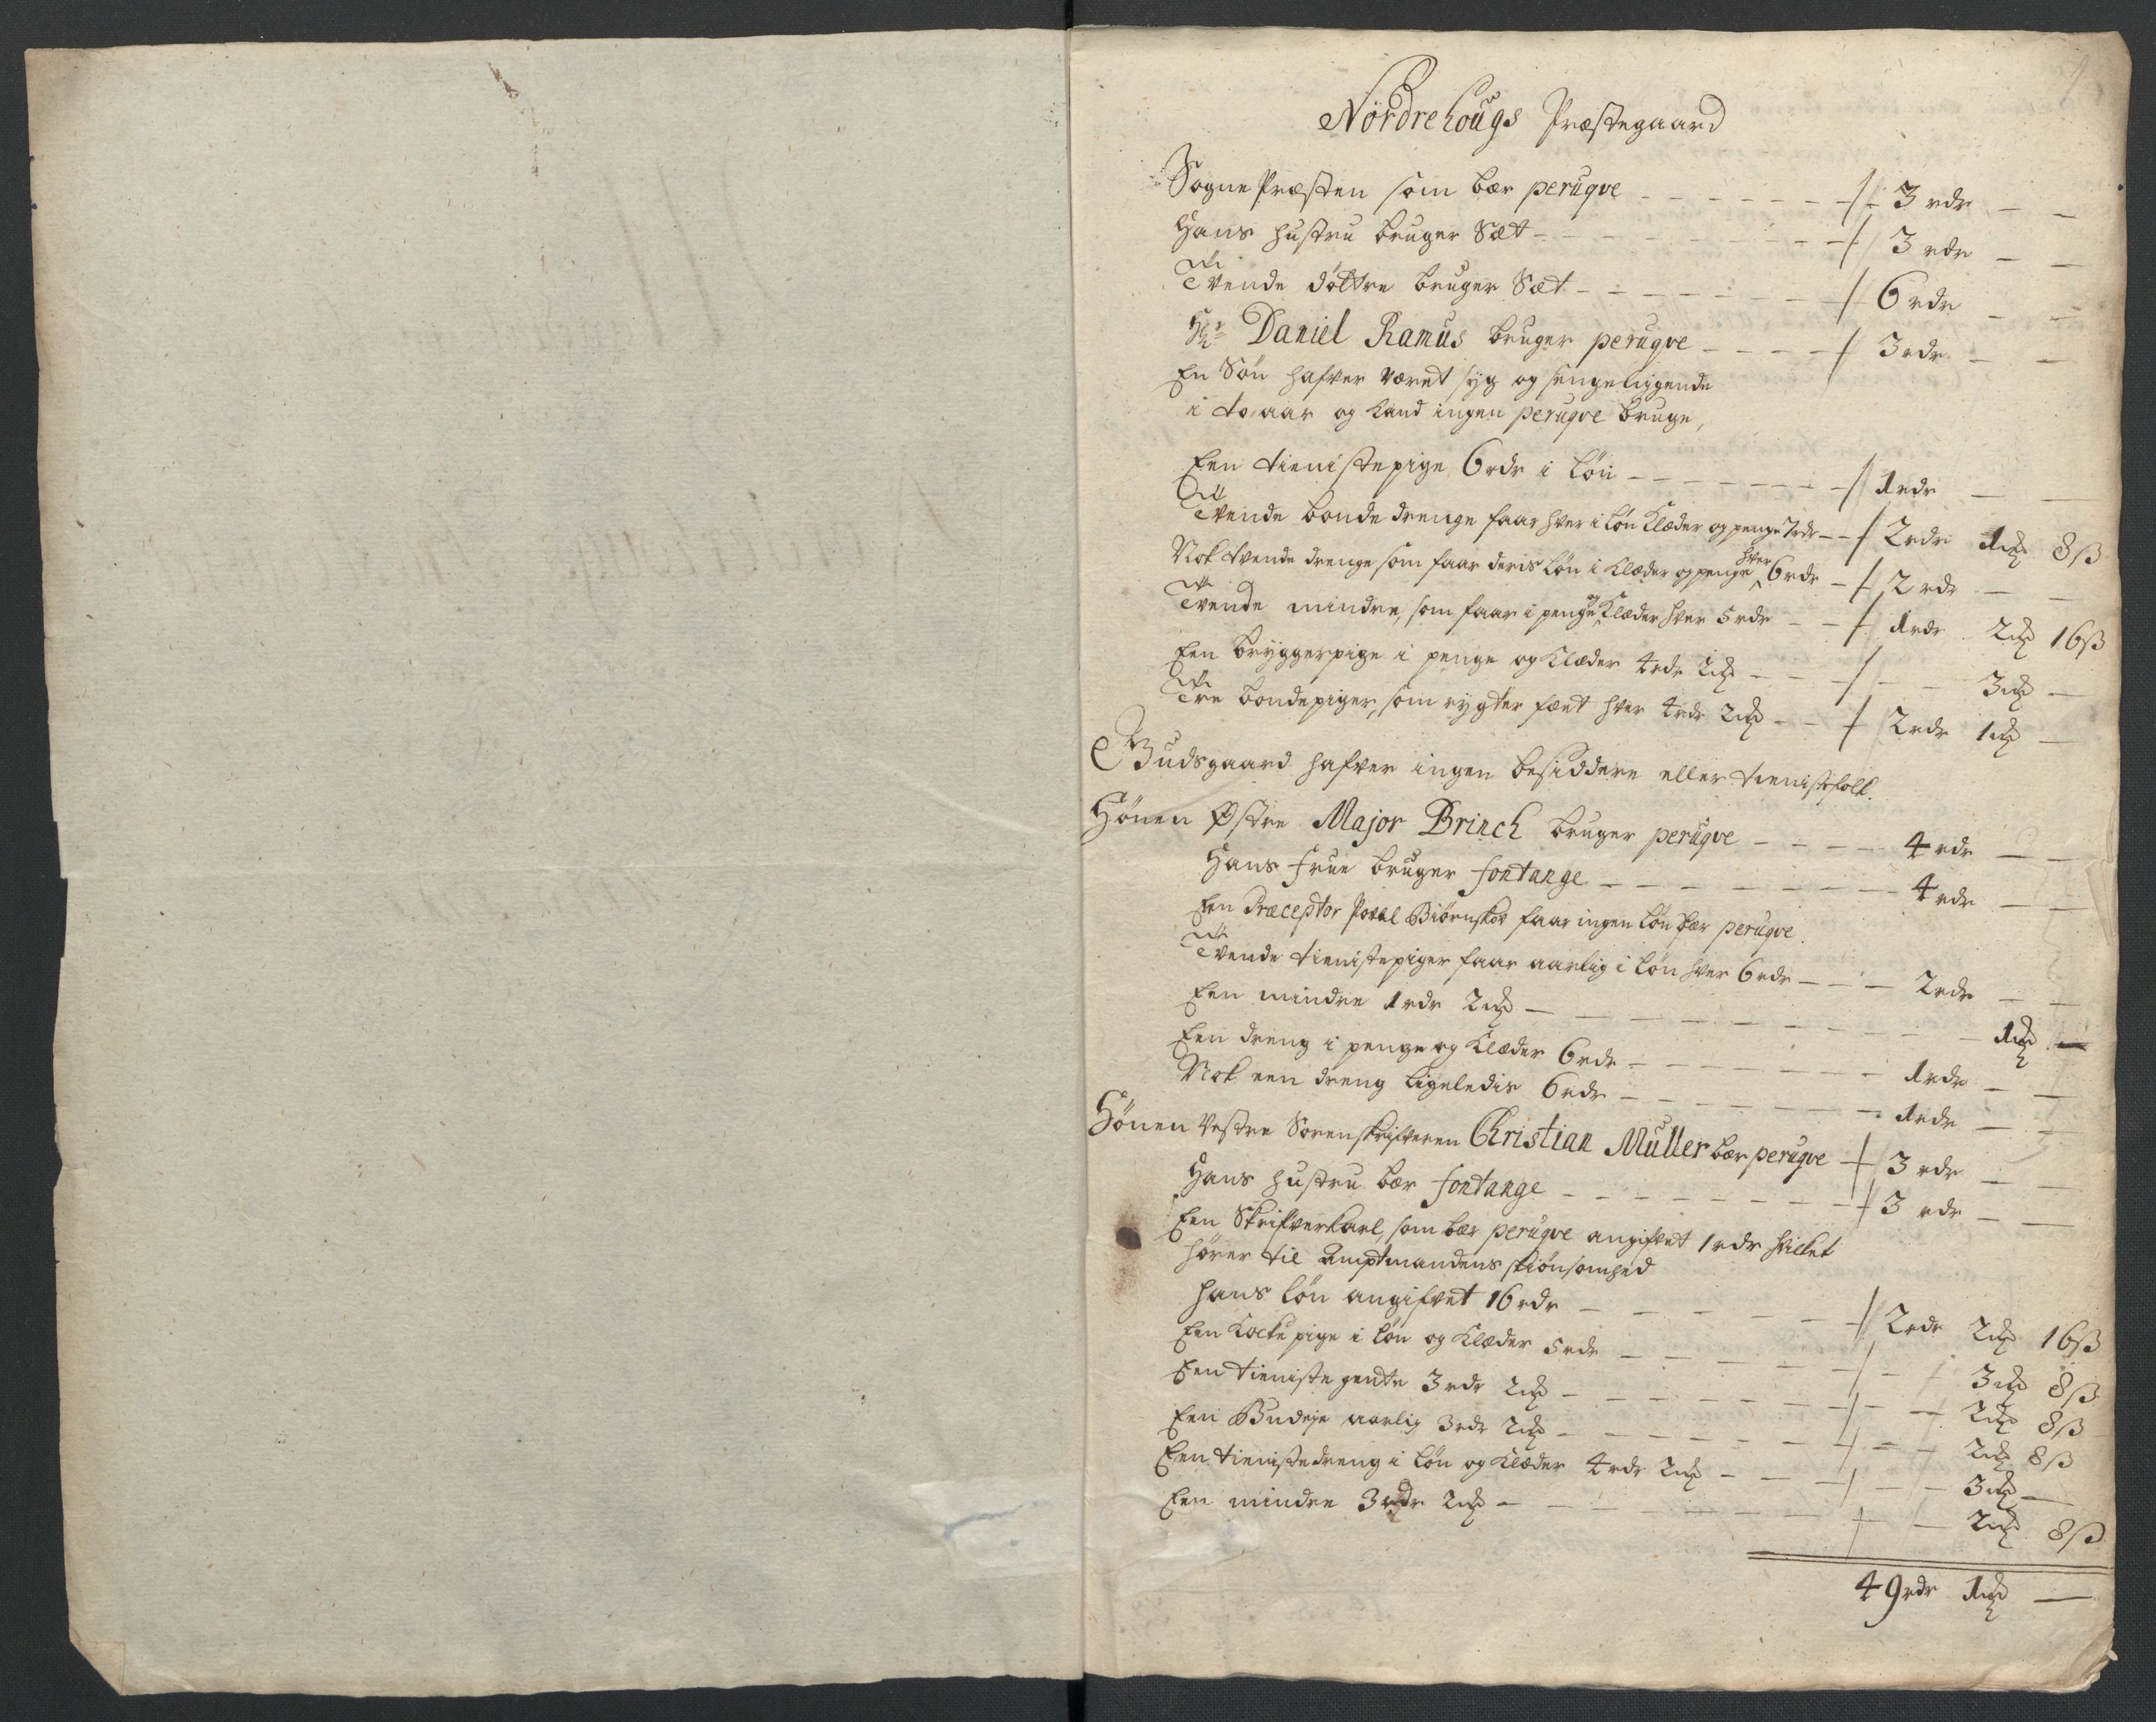 Nordrehougs Præstegaard
Sogne Præsten som bær perüqve - - - 3 rdr - -
Hans hustru bruger Sæt - - - 3 rdr - -
Tvende döttre bruger Sæt - - - 6 rdr - -
Hr Daniel Ramus bruger perüqve - - - 3 rdr - -
En Sön hafver været syg og sengeliggende
i to aar og kand ingen perüqve bruge,
Een tienistepige 6 rdr i Lön - - - 1 rdr - -
Tvende bonde drenge faar hver i Lön Klæder og penge 7 rdr - - 2 rdr 1 mk 8 ß
Nok tvende drenge som faar deris Lön i Klæder og penge hver 6 rdr - 2 rdr - -
Tvende mindre, som faar i penge og Klæder hver 5 rdr - - 1 rdr 2 mk 16 ß
Een bryggerpige i penge og Klæder 4 rdr 2 mk - - - 3 mk -
Tre bondepiger, som rygter fæet hver 4 rdr 2 mk - - 2 rdr 1 mk -
Budsgaard hafver ingen besiddere eller tienistefolk.
Hönen Østre Major Brinch bruger perüqve - - - 4 rdr - -
Hans Frue bruger fontange - - - 4 rdr - -
Een Præceptor Povel Biörnskov faar ingen Lön bær perüqve.
Tvende tienistepiger faar aarlig i Lön hver 6 rdr - - - 2 rdr - -
Een mindre 1 rdr 2 mk - - - 1 mk -
Een dreng i penge og Klæder 6 rdr - - - 1 rdr - -
Nok een dreng ligeledis 6 rdr - - - 1 rdr - -
Hönen Vestre Sorenskrifveren Christian Müller bær perüqve - 3 rdr - -
Hans hustru bær fontange - - - 3 rdr - -
Een Skrifverkarl, som bær perüqve angifvet 1 rdr hvilket
hörer til Amptmandens skiönsomhed
hans Lön angifvet 16 rdr - - - 2 rdr 2 mk 16 ß
Een Kocke pige i Lön og Klæder 5 rdr - - - 3 mk 8 ß
Een tieniste gente 3 rdr 2 mk - - - 2 mk 8 ß
Een Budeje aarlig 3 rdr 2 mk - - - 2 mk 8 ß
Een tienistedreng i Lön og Klæder 4 rdr 2 mk - - - 3 mk -
Een mindre 3 rdr 2 mk - - - 2 mk 8 ß
49 rdr 1 mk -